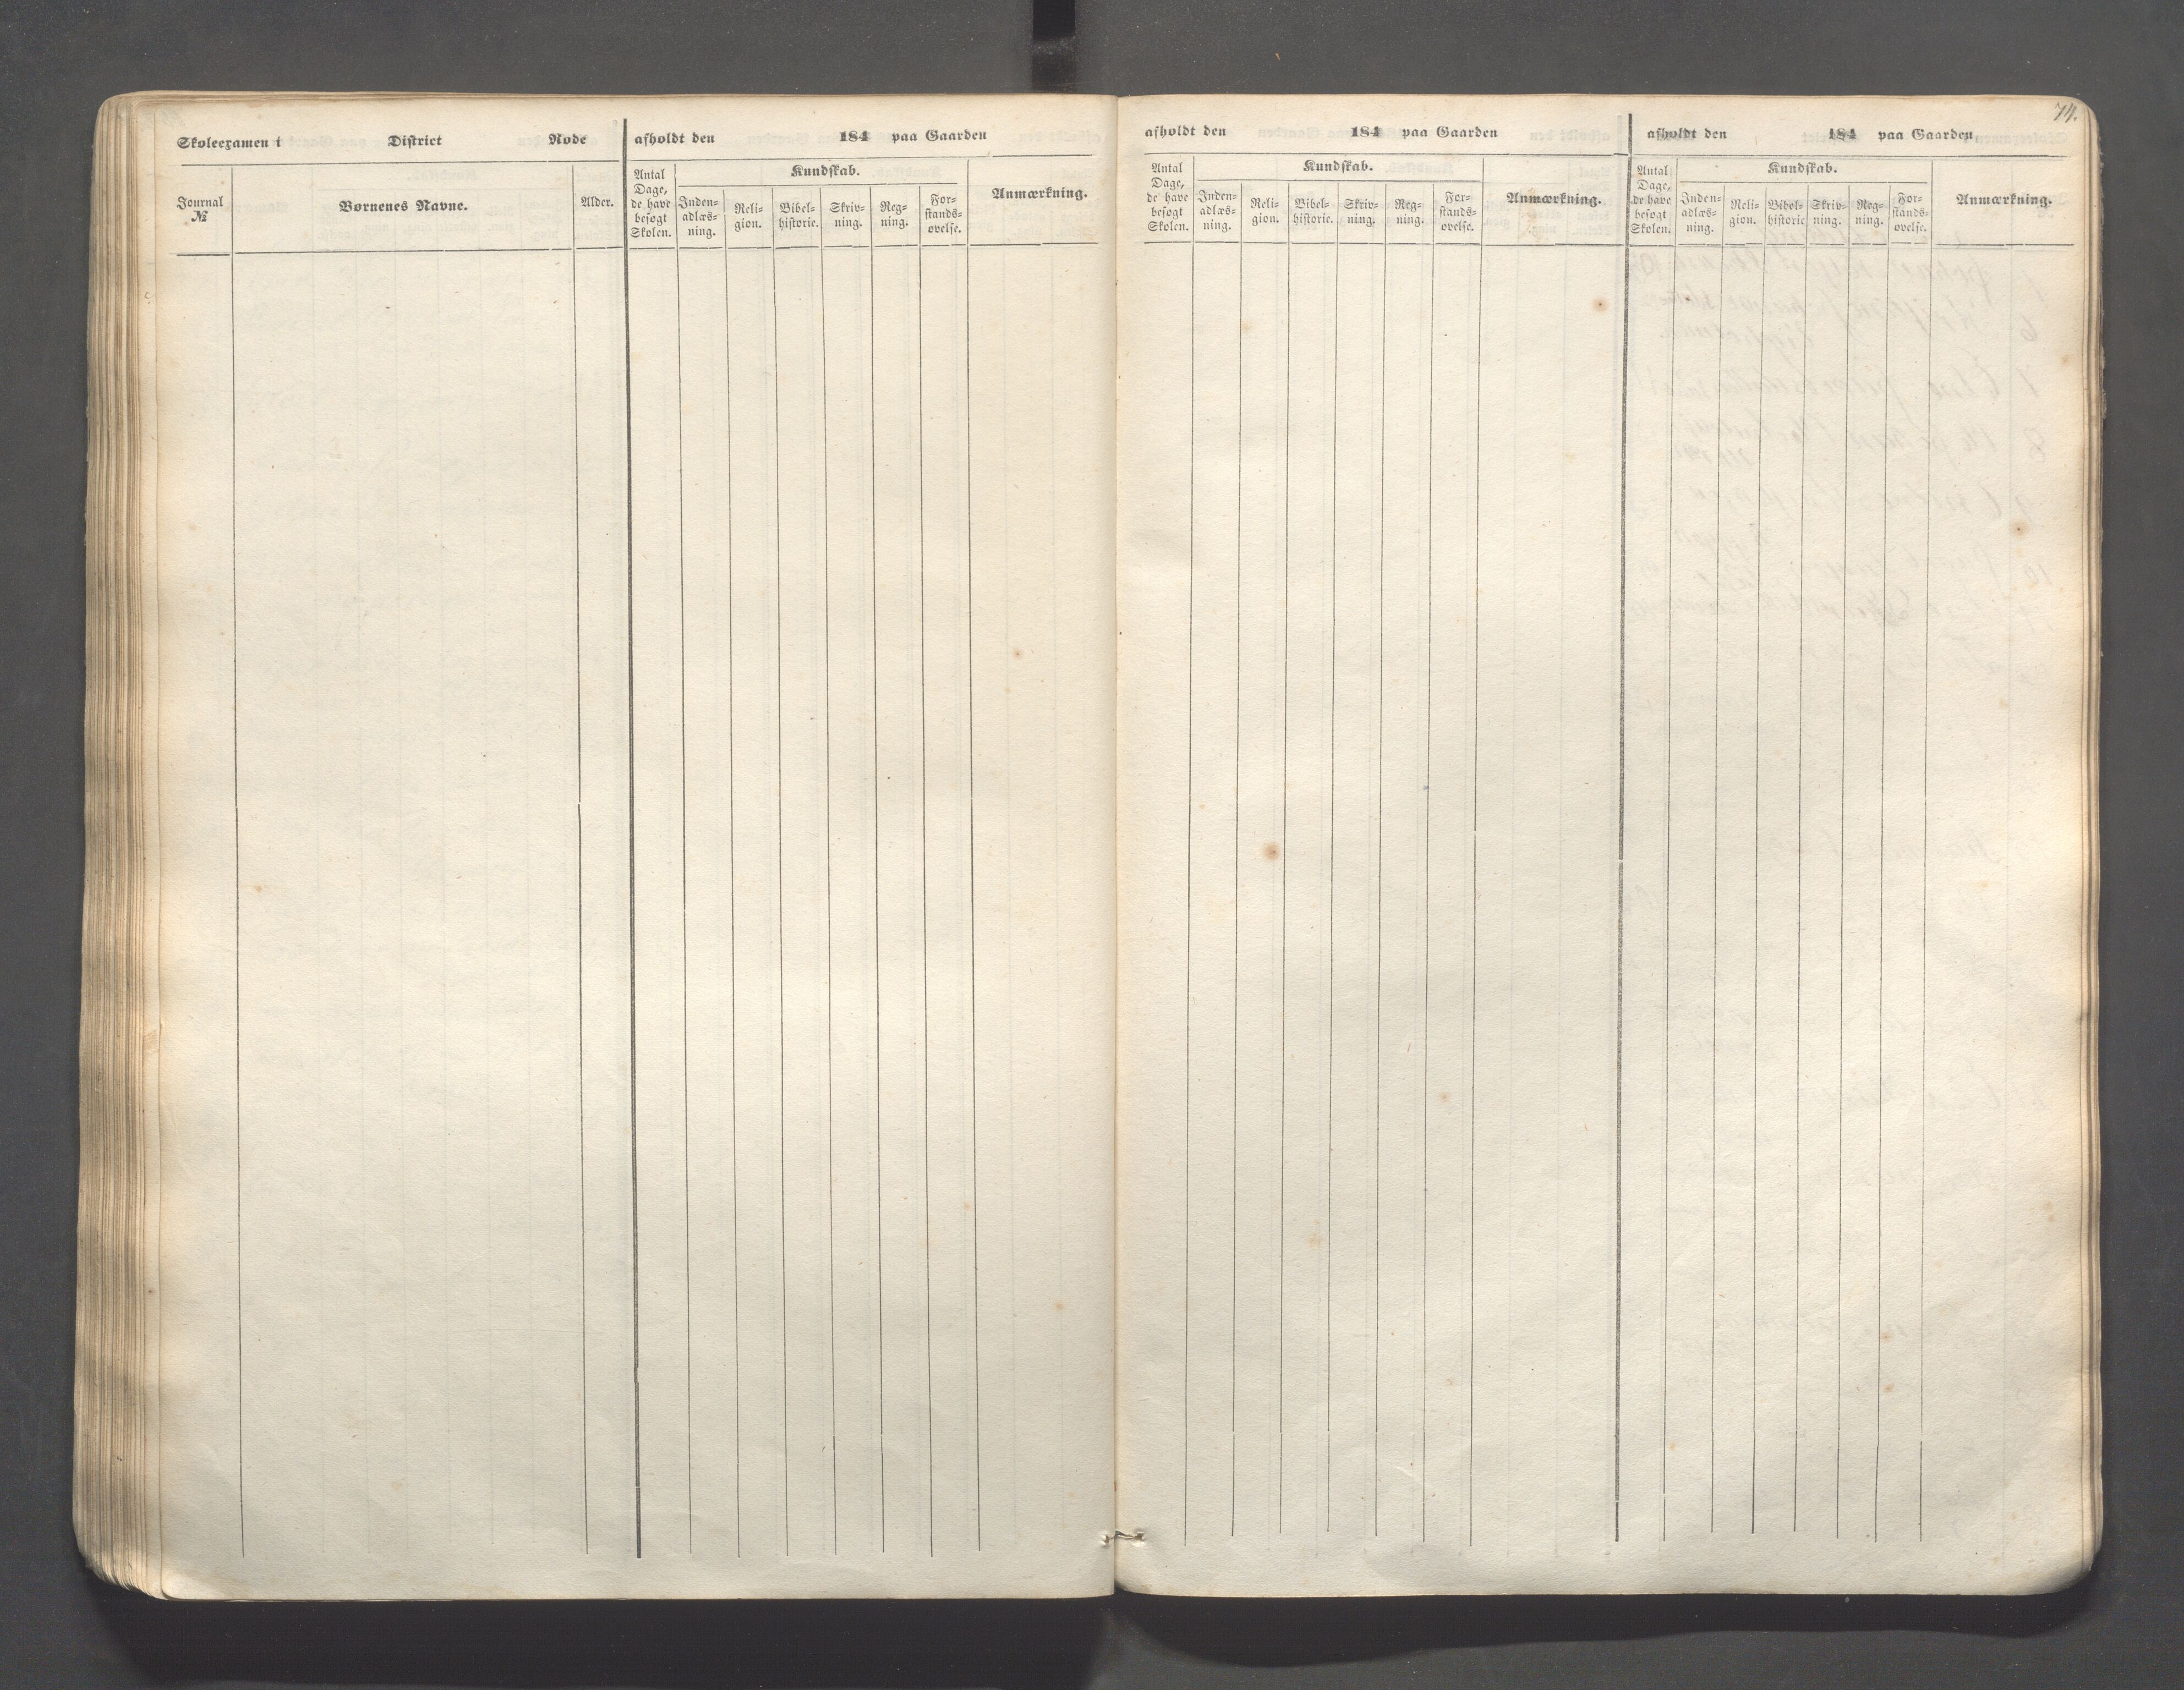 74.
Skoleexamen i District Rode afholdt den 184 paa Gaarden
Journal
№
Børnenes Navne.
Alder.
Antal
Dage,
de have
besøgt
Skolen.
Kundskab.
Inden-
adlæs-
ning.
Reli-
gion.
Bibel-
historie.
Skriv-
ning.
Reg-
ning.
For-
stands-
øvelse.
Anmærkning.
afholdt den 184 paa Gaarden
Antal
Dage,
de have
besøgt
Skolen.
Kundskab.
Inden-
adlæs-
ning.
Reli-
gion.
Bibel-
historie.
Skriv-
ning.
Reg-
ning.
For-
stands-
øvelse.
Anmærkning.
afholdt den 184 paa Gaarden
Antal
Dage,
de have
besøgt
Skolen.
Kundskab.
Inden-
adlæs-
ning.
Reli-
gion.
Bibel-
historie
Skriv-
ning.
Reg-
ning.
For-
stands-
øvelse.
Anmærkning.